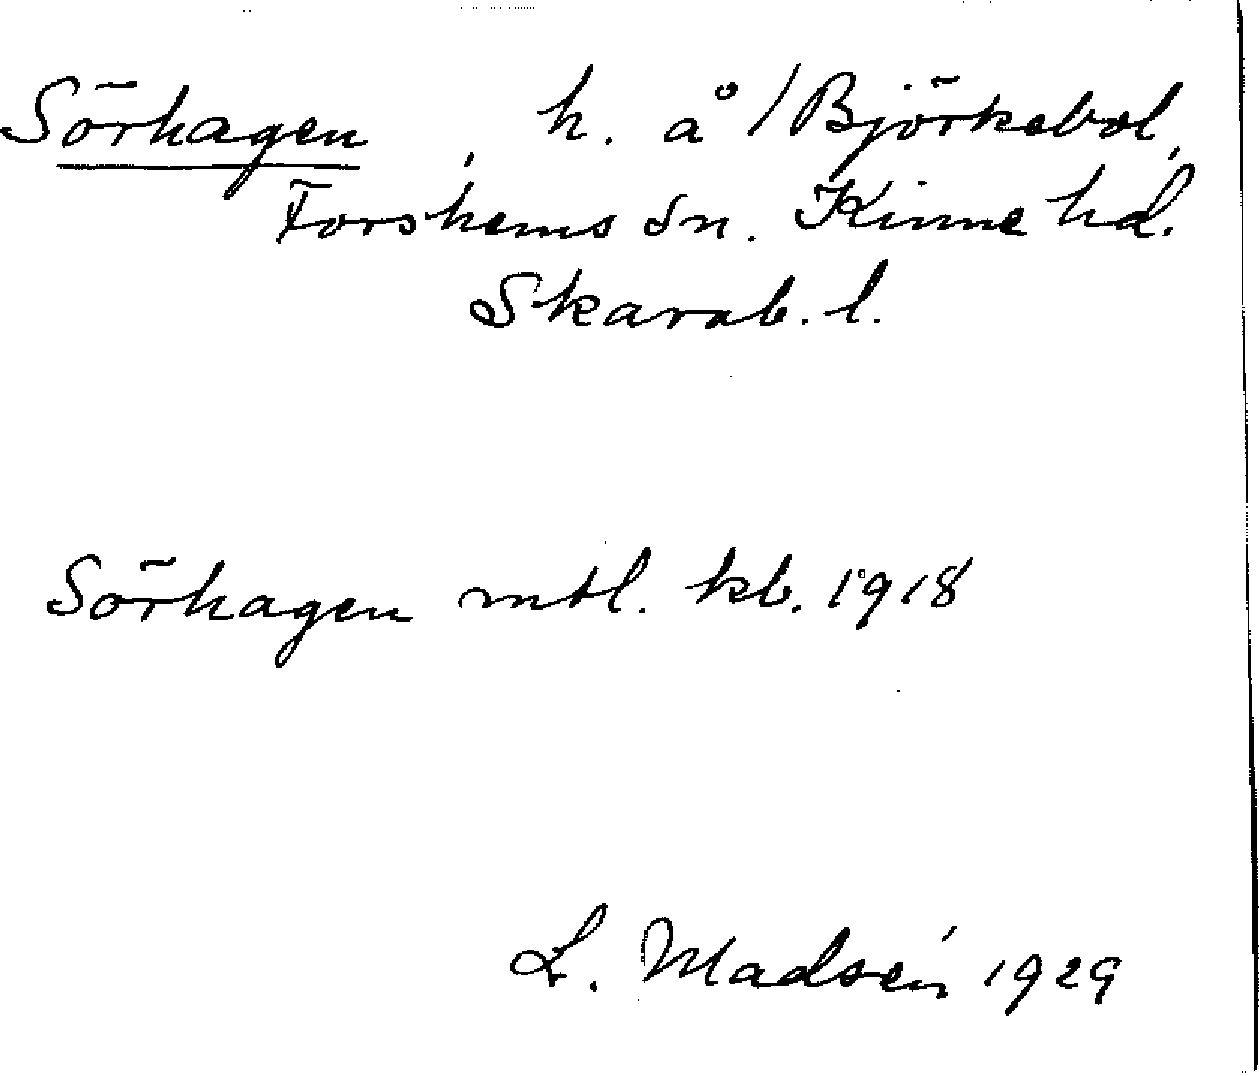 Sörhagen, h. å /Björkebol,
Forshems sn. Kinne hd.
Skarab. l.
Sörhagen mtl. kb. 1918
L. Madsén 1929